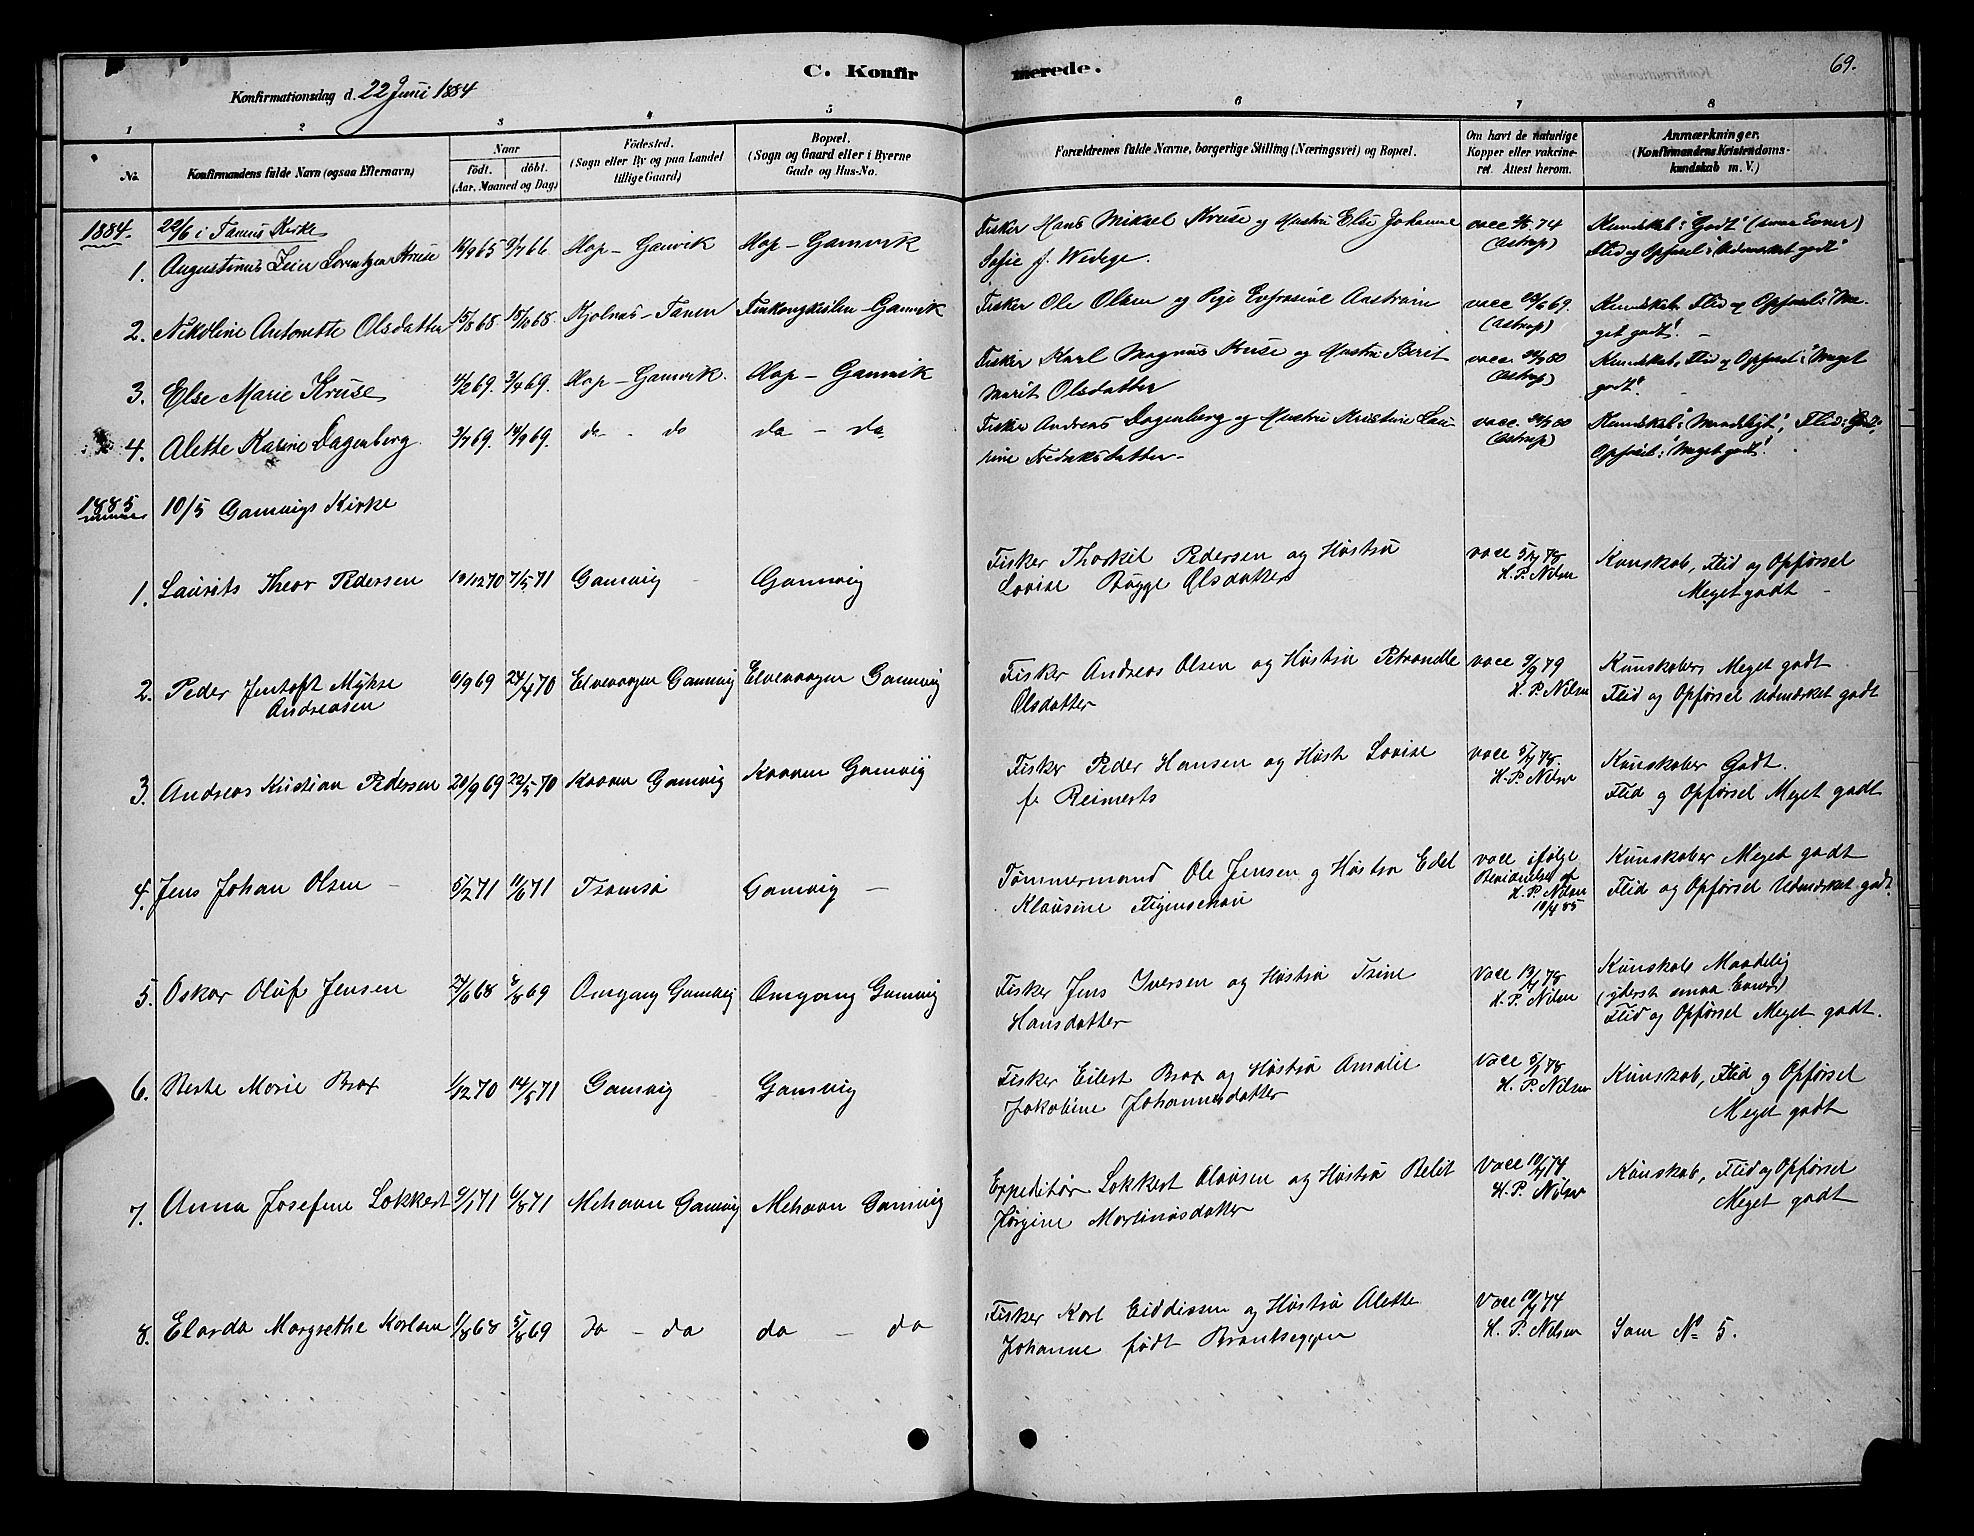 C. Konfir
merede.
69.
Konfirmationsdag d. 22 Juni 1884
1 2 3 4 5 6 7 8
No.
Konfirmandens fulde Navn (ogsaa Efternavn)
Naar
födt. döbt.
(Aar, Maaned og Dag)
Födested.
(Sogn eller By og paa Landet
tillige Gaard)
Bopæl.
(Sogn og Gaard eller i Byerne
Gade og Hus-No.
Forældrenes fulde Navne, borgerlige Stilling (Næringsvei) og Bopæl.
Om havt de naturlige
Kopper eller vakcine-
ret. Attest herom.
Anmærkninger.
(Konfirmandens Kristendoms-
kundskab m. V.)
1884. 22/6 i Tanens Kirke
1. Augustinus Lorentzen Kruse 65 66 Hop - Gamvik Hop - Gamvik Fisker Hans Mikael Kruse og Hustru Else Johanne vacc 74 Kundskab: "Godt" (smaa Evner)
Sofie f. Wedege. (Astrup) Flid og Opførsel: "Udmærket godt"
2. Nikoline Antonette Olsdatter 15/8 68 18/10 68 Kjolnes - Tanen Finkongkeilen - Gamvik Fisker Ole Olsen og Pige Aastrøm vacc 69. Kundskab, Flid og Opførsel: "Me-
(Astrup) get godt". -
3. Else Marie Kruse 4/2 69. 3/4 69. Hop - Gamvik. Hop - Gamvik Fisker Karl Magnus Kruse og Hustru Berit vacc. 80 Kundskab, Flid og Opførsel: "Meget
Marit Olsdatter (Astrup) godt".
4. Alette Karine Dagenberg 3/7 69. 14/9 69. do - do do - do Fisker Andreas Dagenberg og Hustru Kristine Lau- vacc. 80 Kundskab: "Maadeligt", Flid: "Godt",
rine Fredriksdatter - (Astrup) Opførsel: "Meget godt".
1885 10/5 Gamvigs Kirke
1. Laurits Theor Pedersen 19/12 70 7/5 71 Gamvig Gamvig Fisker Thorkil Pedersen og Hustru vacc 5/7 78 Kunskab, Flid og Opførsel
Lovise Bugge Olsdatter H. P. Nilsen Meget godt -
2. Peder Jentoft Myhse 6/9 69 24/4 70 Elvevaagen Gamvig Elvevaagen Gamvig Fisker Andreas Olsen og Hustru Petrandle vacc 9/9 79 Kunskaber Meget godt
Andreasen Olsdatter H. P. Nilsen Flid og Opførsel Udmærket godt
3. Andreas Kristian Pedersen 20/9 69 22/5 70 Kooven Gamvig Kooven Gamvig Fisker Peder Hansen og Hustr Lovise vacc 5/7 78. Kunskaber Godt.
f. Reimerts H. P. Nilsen Flid og Opførsel Meget godt
4. Jens Johan Olsen - 5/2 71 11/6 71 Tromsø Gamvig - Tømmermand Ole Jensen og Hustru Edel vacc ifølge Kunskaber Meget godt
Klausine Figenschau Bevidnelse af Flid og Opførsel Udmærket godt
H. P. Nilsen
10/4 85
5. Oskar Oluf Jensen 68 8/8 69 Omgang Gamvig Omgang Gamvig Fisker Jens Iversen og Hustru Trine Vacc 13/7 78 Kunskab Maadelig
Hansdatter H. P. Nilsen (yderst smaa Evner)
Flid og Opførsel Meget godt.
6. Marie Brox 1/12 70 14/5 71 Gamvig Gamvig Fisker Eilert Brox og Hustru Amalie Vacc 5/7 78 Kunskab, Flid og Opførsel
Jakobine Johannesdatter H. P. Nilsen Meget godt
7. Anna Josefine Lokkert 9/1 71 6/8 71 Mehavn Gamvig Mehavn Gamvig Expeditør Lokkert Olausen og Hustru Belet Vacc 10/7 74 Kunskab, Flid og Opførsel
Jørgine Martinusdatter H. P. Nilsen Meget godt
8. Elarda Margrethe Karlsen 1/8 68 5/8 69 do - do do - do Fisker Karl Eiddissen og Hustru Alette Vacc 74
Johanne født H. P. Nilsen Som No 5.